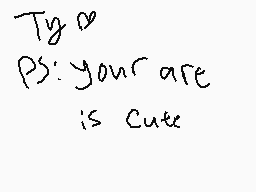 Ty ♡
PS: your are
is cute